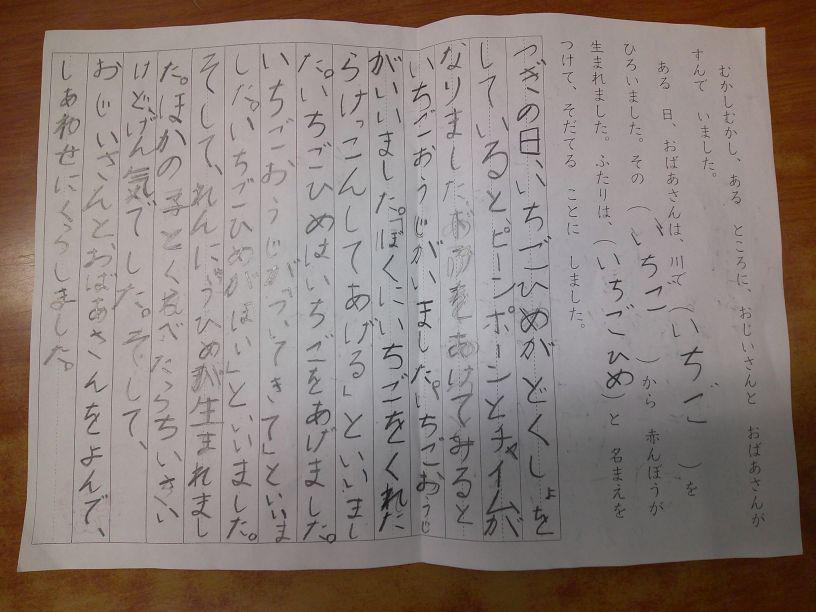 むかしむかし、ある ところに、おじいさんと おばあさんが
すんで いました。
ある 日、おばあさんは、川で（いちご）を
ひろいました。その（いちご）から 赤んぼうが
生まれました。ふたりは、（いちごひめ）と 名まえを
つけて、そだてる ことに しました。
つぎの日、いちごひめがどくしょを
していると、ピーンポーンとチャイムが
なりました。をあけてみると
いちごおうじがいました。いちごおうじ
がいいました。「ぼくにいちごをくれた
らけっこんしてあげる」といいまし
た。いちごひめはいちごをあげました。
いちごおうじが「ついてきて」といいま
した。いちごひめが「はい」といいました。
そして、れんにごうひめが生まれまし
た。ほかの子とくらべたらちいさい
けど、げん気でした。そして、
おじいさんと、おばあさんをよんで、
しあわせにくらしました。